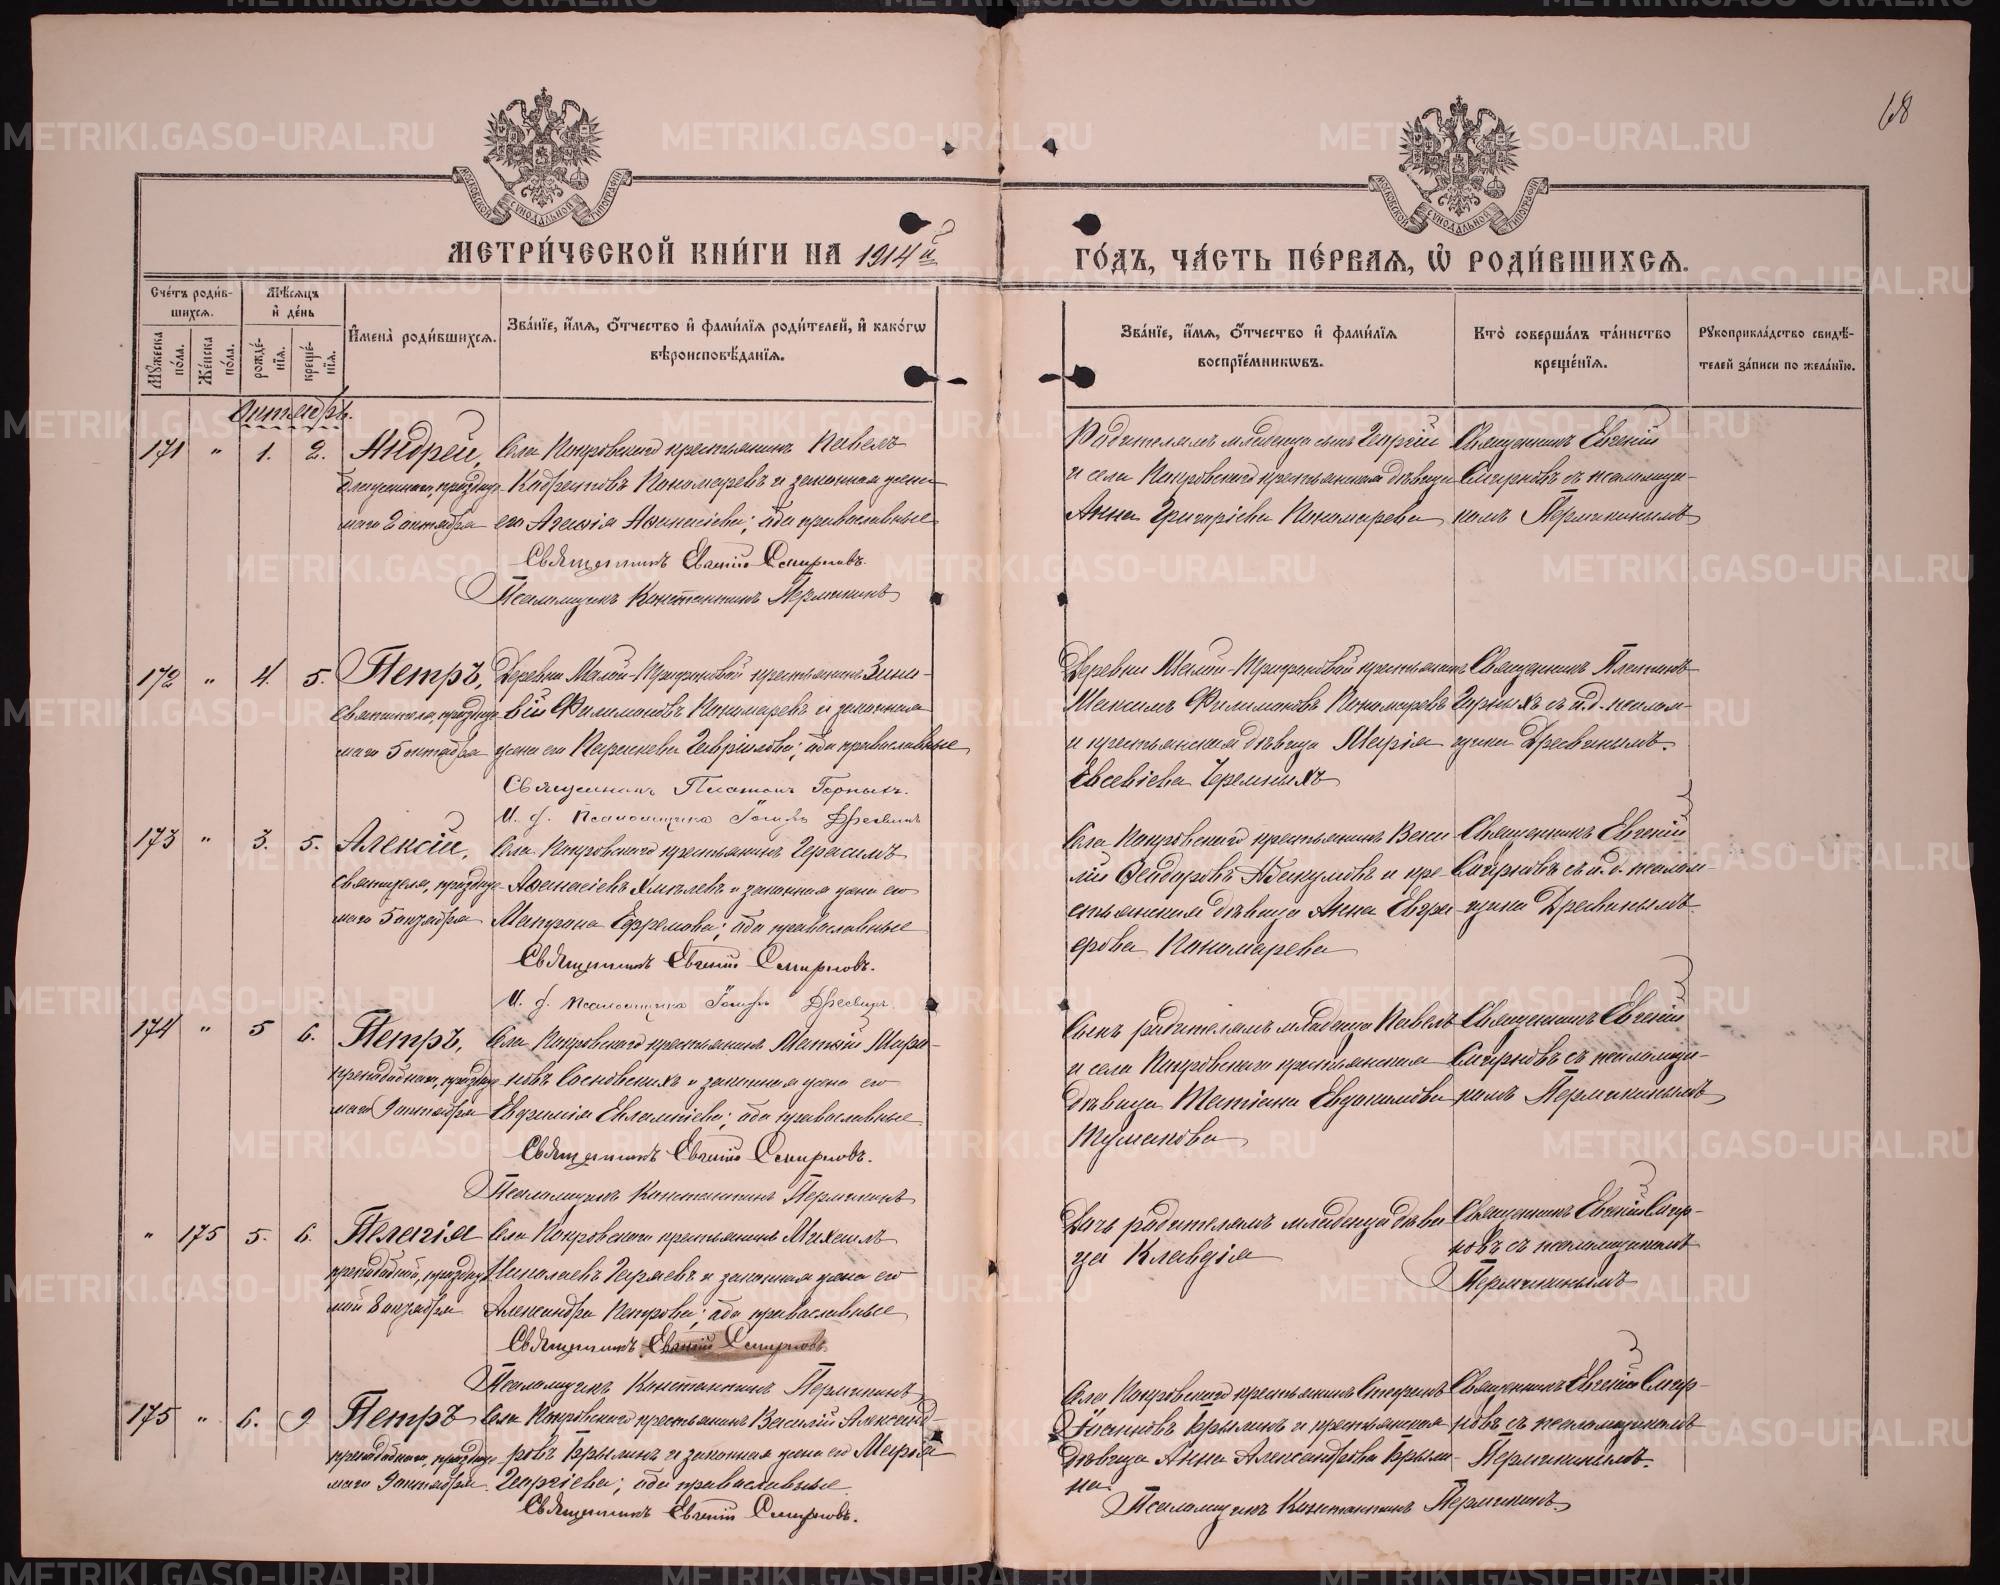 68
МОСКОВСКОЙ СУНОДАЛЬНОЙ ТИПОГРАФІИ
МОСКОВСКОЙ СУНОДАЛЬНОЙ ТИПОГРАФІИ
МЕТРИ́ЧЕСКОЙ КНИ́ГИ НА 1914й
ГО́ДЪ, ЧА́СТЬ ПЕ́РВАЯ, Ѡ҆ РОДИ́ВШИХСЯ.
Сче́тъ роди́в-
шихся.
Мѣ́сяцъ
и҆ де́нь
Мꙋ́жеска по́ла.
Же́нска по́ла.
рожде́-
нїя.
креще́-
нїя.
И҆мена̀ роди́вшихся.
Зва́нїе, и҆́мя, ѻ҆́тчество и҆ фами́лїя роди́телей, и҆ како́гѡ
вѣроисповѣ́данїя.
Зва́нїе, и҆́мя, ѻ҆́тчество и҆ фами́лїя
воспрїе́мникѡвъ.
Кто̀ соверша́лъ та́инство
креще́нїя.
Рꙋкоприкла́дство свидѣ́-
телей за́писи по жела́нїю.
Октябрь.
171 " 1. 2. Андрей,
блаженнаго, праздну-
маго 2 октября
Села Покровскаго крестьянинъ Павелъ
Кодратовъ Пономаревъ и законная жена
его Агафія Афанасіева; оба православные
Священникъ Евгеній Смирновъ.
Псаломщикъ Константинъ Пермикинъ
Родителямъ младенца сынъ Георгій
и села Покровскаго крестьянская дѣвица
Анна Григоріева Пономарева
Священникъ Евгеній
Смирновъ съ псаломщи-
комъ Пермикинымъ
172 " 4. 5. Петръ,
святителя, праздну-
маго 5 октября
Деревни Малой-Трифоновой крестьянинъ Зино-
вій Филимоновъ Пономаревъ и законная
жена его Парасковья Гавріилова; оба православные
Священникъ Платонъ Горныхъ.
И. д. Псаломщика Іосифъ Дресвинъ
Деревни Малой-Трифоновой крестьянинъ
Максимъ Филимоновъ Пономаревъ
и крестьянская дѣвица Марія
Евсевіева Черемныхъ
Священникъ Платонъ
Горныхъ съ и.д. псалом-
щика Дресвинымъ.
173 " 3. 5. Алексій,
святителя, праздну-
маго 5 октября
Села Покровскаго крестьянинъ Герасимъ
Афанасіевъ Хмѣлевъ и законная жена его
Матрона Ефремова; оба православные
Священникъ Евгеній Смирновъ.
И. д. псаломщика Іосифъ Дресвинъ
Села Покровскаго крестьянинъ Васи-
лій Ѳеодоровъ Абакумовъ и кре-
стьянская дѣвица Анна Евгра-
фова Пономарева
Священникъ Евгеній
Смирновъ съ и.д. псалом-
щика Дресвинымъ.
174 " 5 6. Петръ,
преподобнаго, праздну-
маго 9 октября
Села Покровскаго крестьянинъ Матвій Миро-
новъ Сосновскихъ и законная жена его
Евдокія Евлампіева; оба православные
Священникъ Евгеній Смирновъ.
Псаломщикъ Константинъ Пермикинъ
Сынъ родителямъ младенца Павелъ
и села Покровскаго крестьянская
дѣвица Татіана Евдокимова
Туманова
Священникъ Евгеній
Смирновъ съ псаломщи-
комъ Пермикинымъ
" 175 5. 6. Пелагія
преподобной, праздну-
мой 8 октября
Села Покровскаго крестьянинъ Михаилъ
Николаевъ Гараевъ и законная жена его
Александра Петрова; оба православные
Священникъ Евгеній Смирновъ.
Псаломщикъ Константинъ Пермикинъ
Дочь родителямъ младенца дѣви-
ца Клавдія
Священникъ Евгеній Смир-
новъ съ псаломщикомъ
Пермикинымъ
175 " 6. 9 Петръ
преподобнаго, праздну-
маго 9 октября.
Села Покровскаго крестьянинъ Василій Александ-
ровъ Брылинъ и законная жена его Марія
Георгіева; оба православные
Священникъ Евгеній Смирновъ.
Села Покровскаго крестьянинъ Стефанъ
Іосифовъ Брылинъ и крестьянская
дѣвица Анна Александрова Брыли-
на.
Священникъ Евгеній Смир-
новъ съ псаломщикомъ
Пермикинымъ.
Псаломщикъ Константинъ Пермикинъ.